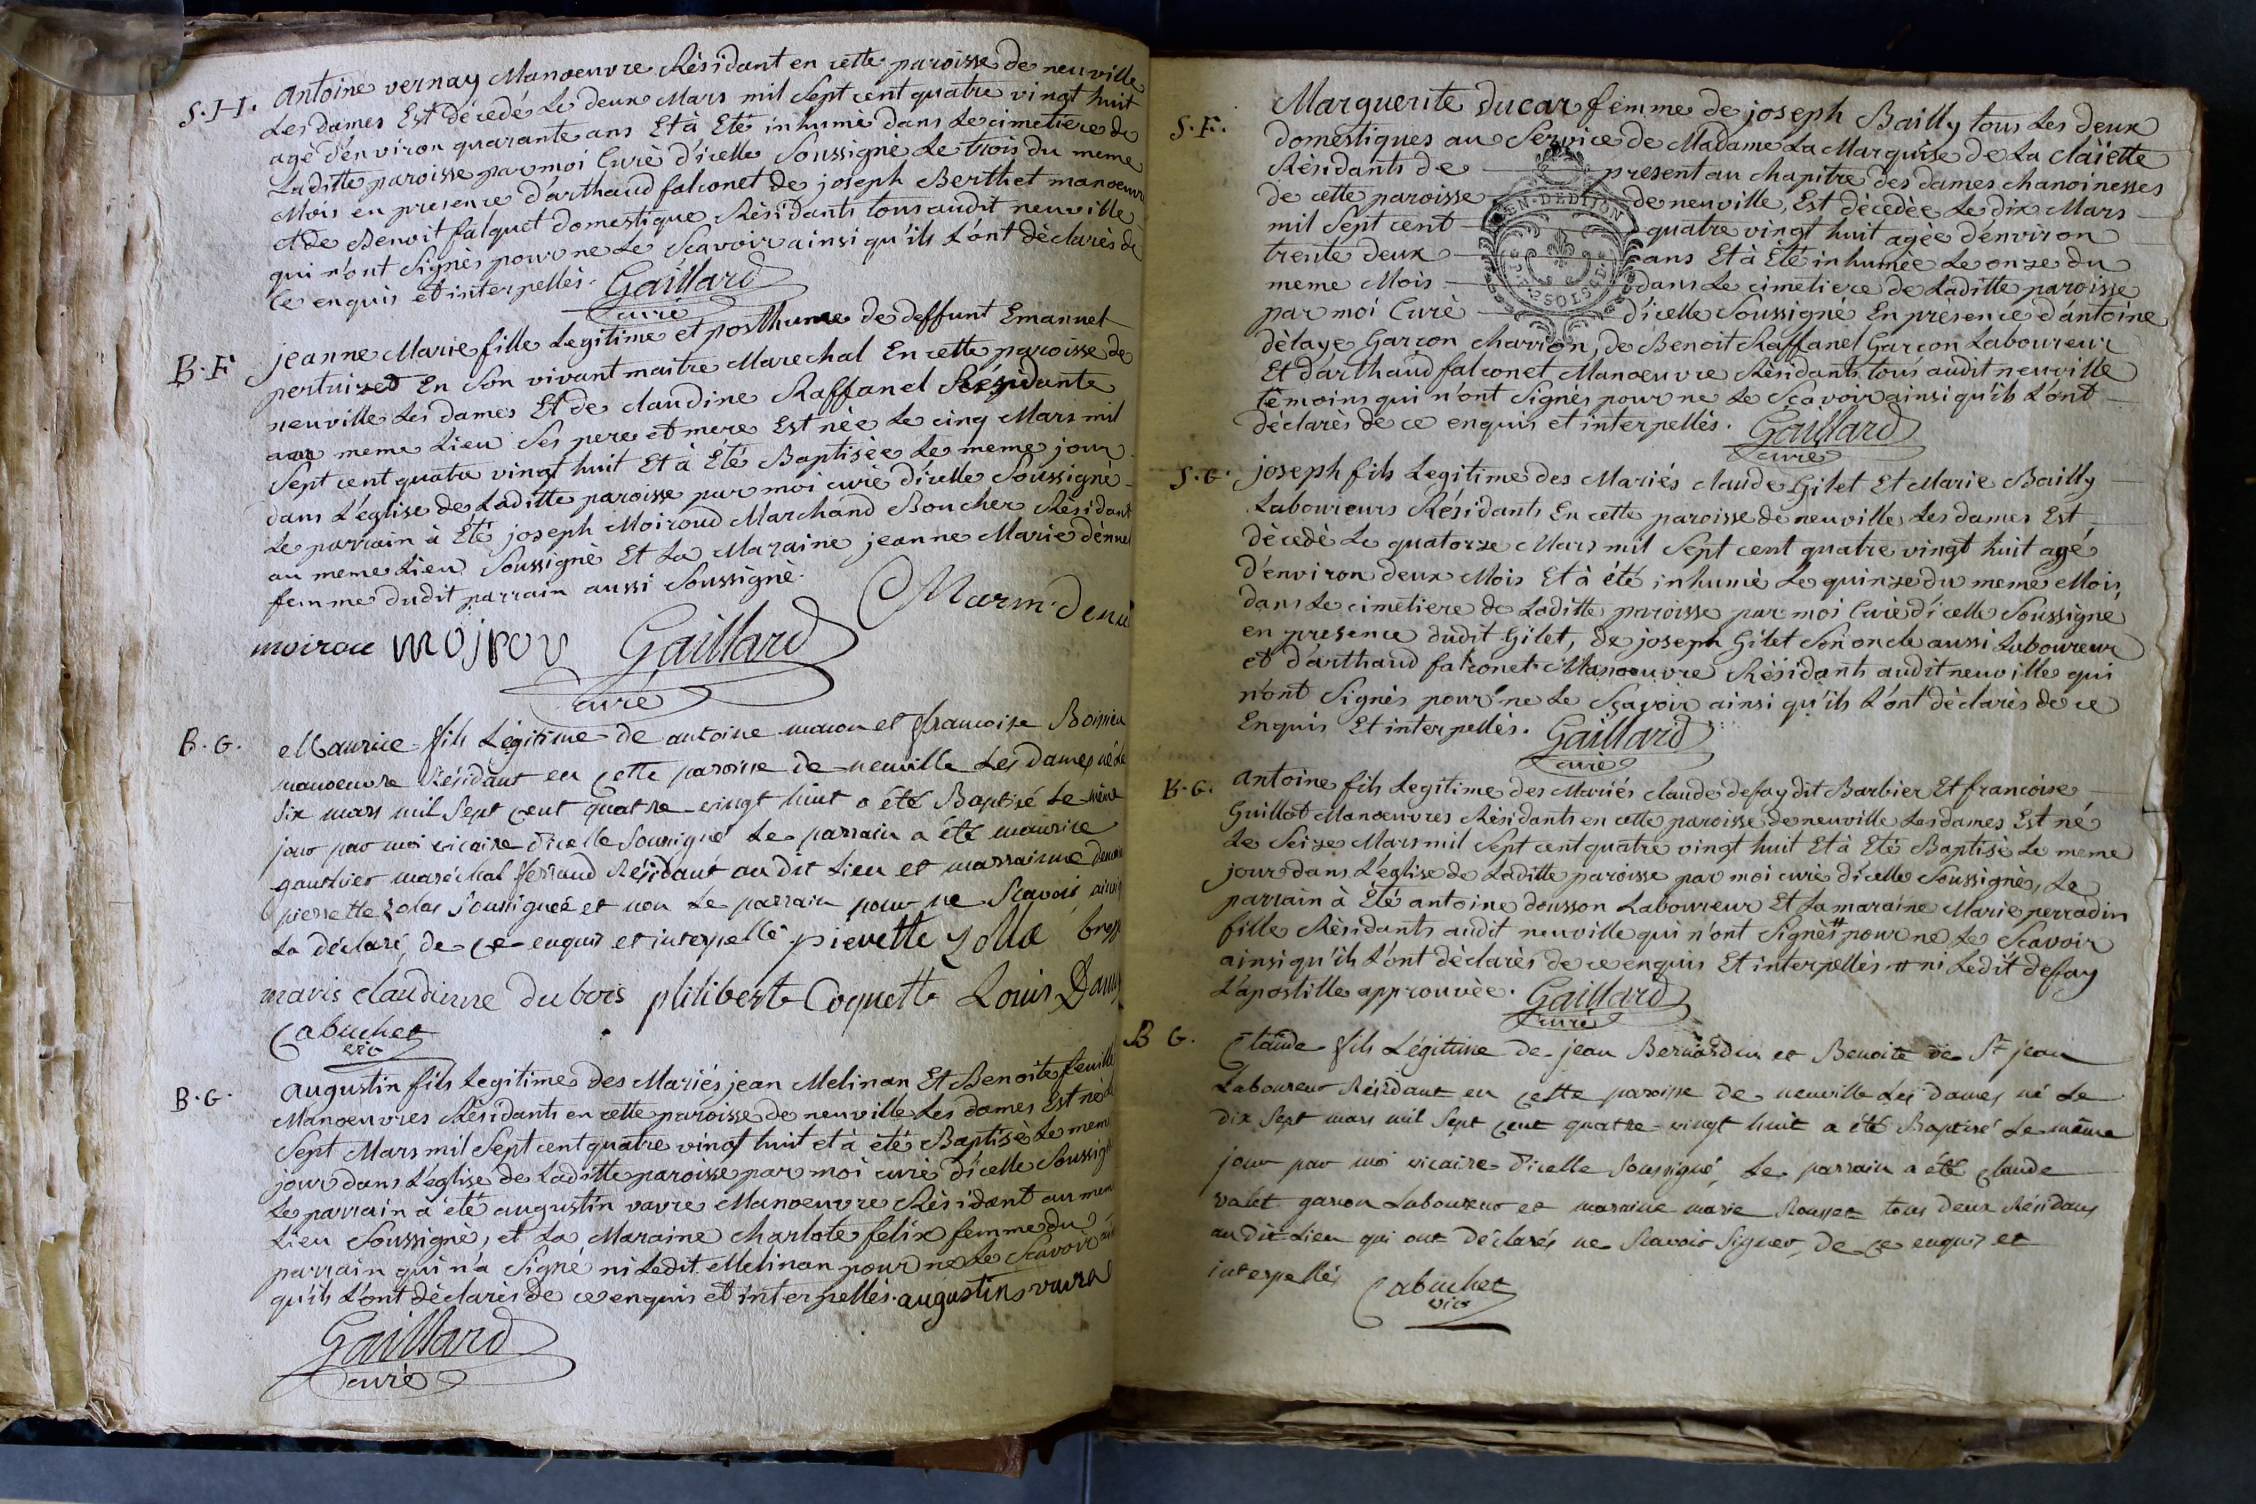 S.H. Antoine vernay Manoeuvre Résidant en cette paroisse de neuville
Les dames Est décédé Le deux Mars mil Sept cent quatre vingt huit
agé d'environ quarante ans Et à Eté inhumé dans Le cimetiere de
Laditte paroisse par moi Curé d'icelle Soussigné Le trois du meme
Mois en presence d'arthaud falconet de joseph Berthet manoeuvre
et de Benoit falquet domestique Résidants tous audit neuville
qui n'ont Signés pour ne Le Scavoir ainsi qu'ils L'ont déclarés de
Ce enquis et interpellés. Gaillard
Curé
B.F jeanne Marie fille Legitime et posthume de deffunt Emanuel
pertuizet En Son vivant maitre Marechal En cette paroisse de
neuville Les dames Et de claudine Raffanel Résidante
au meme Lieu Ses pere et mere Est née Le cinq Mars mil
Sept cent quatre vingt huit Et à Eté Baptisée Le meme jour
dans L'église de Laditte paroisse par moi curé d'icelle Soussigné
Le parrain à Eté joseph Moiroud Marchand Boucher Résidant
au meme Lieu Soussigné Et La Maraine jeanne Marie
femme dudit parrain aussi Soussigné.
Marin
Gaillard
curé
B.G. Maurice fils Légitime de antoine et francoise
manoeuvre Résidant en cette paroisse de neuville Les dames né Le
six mars mil Sept cent quatre vingt huit a été Baptisé Le même
jour par moi vicaire d'icelle Soussigné Le parrain a été maurice
gauthier maréchal Résidant audit Lieu et marrainne
pierrette Soussignée et non Le parrain pour ne Scavoir ainsi
La déclaré de ce enquis et interpellé pierette
claudienne dubois philibert Coquette Louis
Cabuchet
vic
B.G. augustin fils Legitime des Mariés jean Melinan Et Benoite
Manoeuvres Résidants en cette paroisse de neuville Les dames Est né Le
Sept Mars mil Sept cent quatre vingt huit et à été Baptisé Le meme
jour dans L'église de Laditte paroisse par moi curé d'icelle Soussigné
Le parrain à été augustin vavre Manoeuvre Résidant au meme
Lieu Soussigné, et La Maraine charlote félix femme du
parrain qui n'a Signé ni Ledit Melinan pour ne Le Scavoir ainsi
qu'ils L'ont déclarés de ce enquis et interpellés. augustins vavra
Gaillard
curé
S.F. Marguerite Ducar femme de joseph Bailly tous Les deux
domestiques au Service de Madame La Marquise de La claïette
Résidants de present au chapitre des dames chanoinesses
de cette paroisse de neuville, Est décédée Le dix Mars
GEN. DE DIJON
mil Sept cent quatre vingt huit agée d'environ
trente deux ans Et à Eté inhumée Le onze du
meme Mois dans Le cimetiere de Laditte paroisse
par moi Curé d'icelle Soussigné En presence d'antoine
délaye Garcon charron, de Benoit Raffanel Garcon Laboureur
Et d'arthaud falconet Manoeuvre Résidants tous audit neuville
témoins qui n'ont Signés pour ne Le Scavoir ainsi qu'ils L'ont
déclarés de ce enquis et interpellés. Gaillard
curé
S.G. joseph fils Legitime des Mariés claude Gilet Et Marie Bailly
Laboureurs Résidants En cette paroisse de neuville Les dames Est
décédé Le quatorze Mars mil Sept cent quatre vingt huit agé
d'environ deux Mois Et à été inhumé Le quinze du meme Mois,
dans Le cimetiere de Laditte paroisse par moi Curé d'icelle Soussigné
en presence dudit Gilet, de joseph Gilet Son oncle aussi Laboureur
et d'arthaud falconet Manoeuvre Résidants audit neuville qui
n'ont Signés pour ne Le Sçavoir ainsi qu'ils L'ont déclarés de ce
Enquis Et interpellés. Gaillard
curé
B.G. Antoine fils Legitime des Mariés claude defay dit Barbier Et francoise
Guillot Manoeuvres Résidants en cette paroisse de neuville Les dames Est né
Le Seize Mars mil Sept cent quatre vingt huit Et à Eté Baptisé Le meme
jour dans L'église de Laditte paroisse par moi curé d'icelle Soussigné, Le
parrain à Eté antoine dousson Laboureur Et La maraine Marie perradin
fille Résidants audit neuville qui n'ont Signés # pour ne Le Scavoir
ainsi qu'ils L'ont déclarés de ce enquis Et interpellés # ni Ledit defay
L'apostille approuvée. Gaillard
curé
B G. Claude fils Légitime de jean Bernardin et Benoite de St jean
Laboureur Résidant en cette paroisse de neuville Les dames né Le
dix Sept mars mil Sept cent quatre vingt huit a été Baptisé Le même
jour par moi vicaire d'icelle Soussigné, Le parrain a été claude
valet garcon Laboureur et maraine marie Rousset tous deux Résidans
audit Lieu qui ont déclarés ne Scavoir Signer, de ce enquis et
interpellés Cabuchet
vic